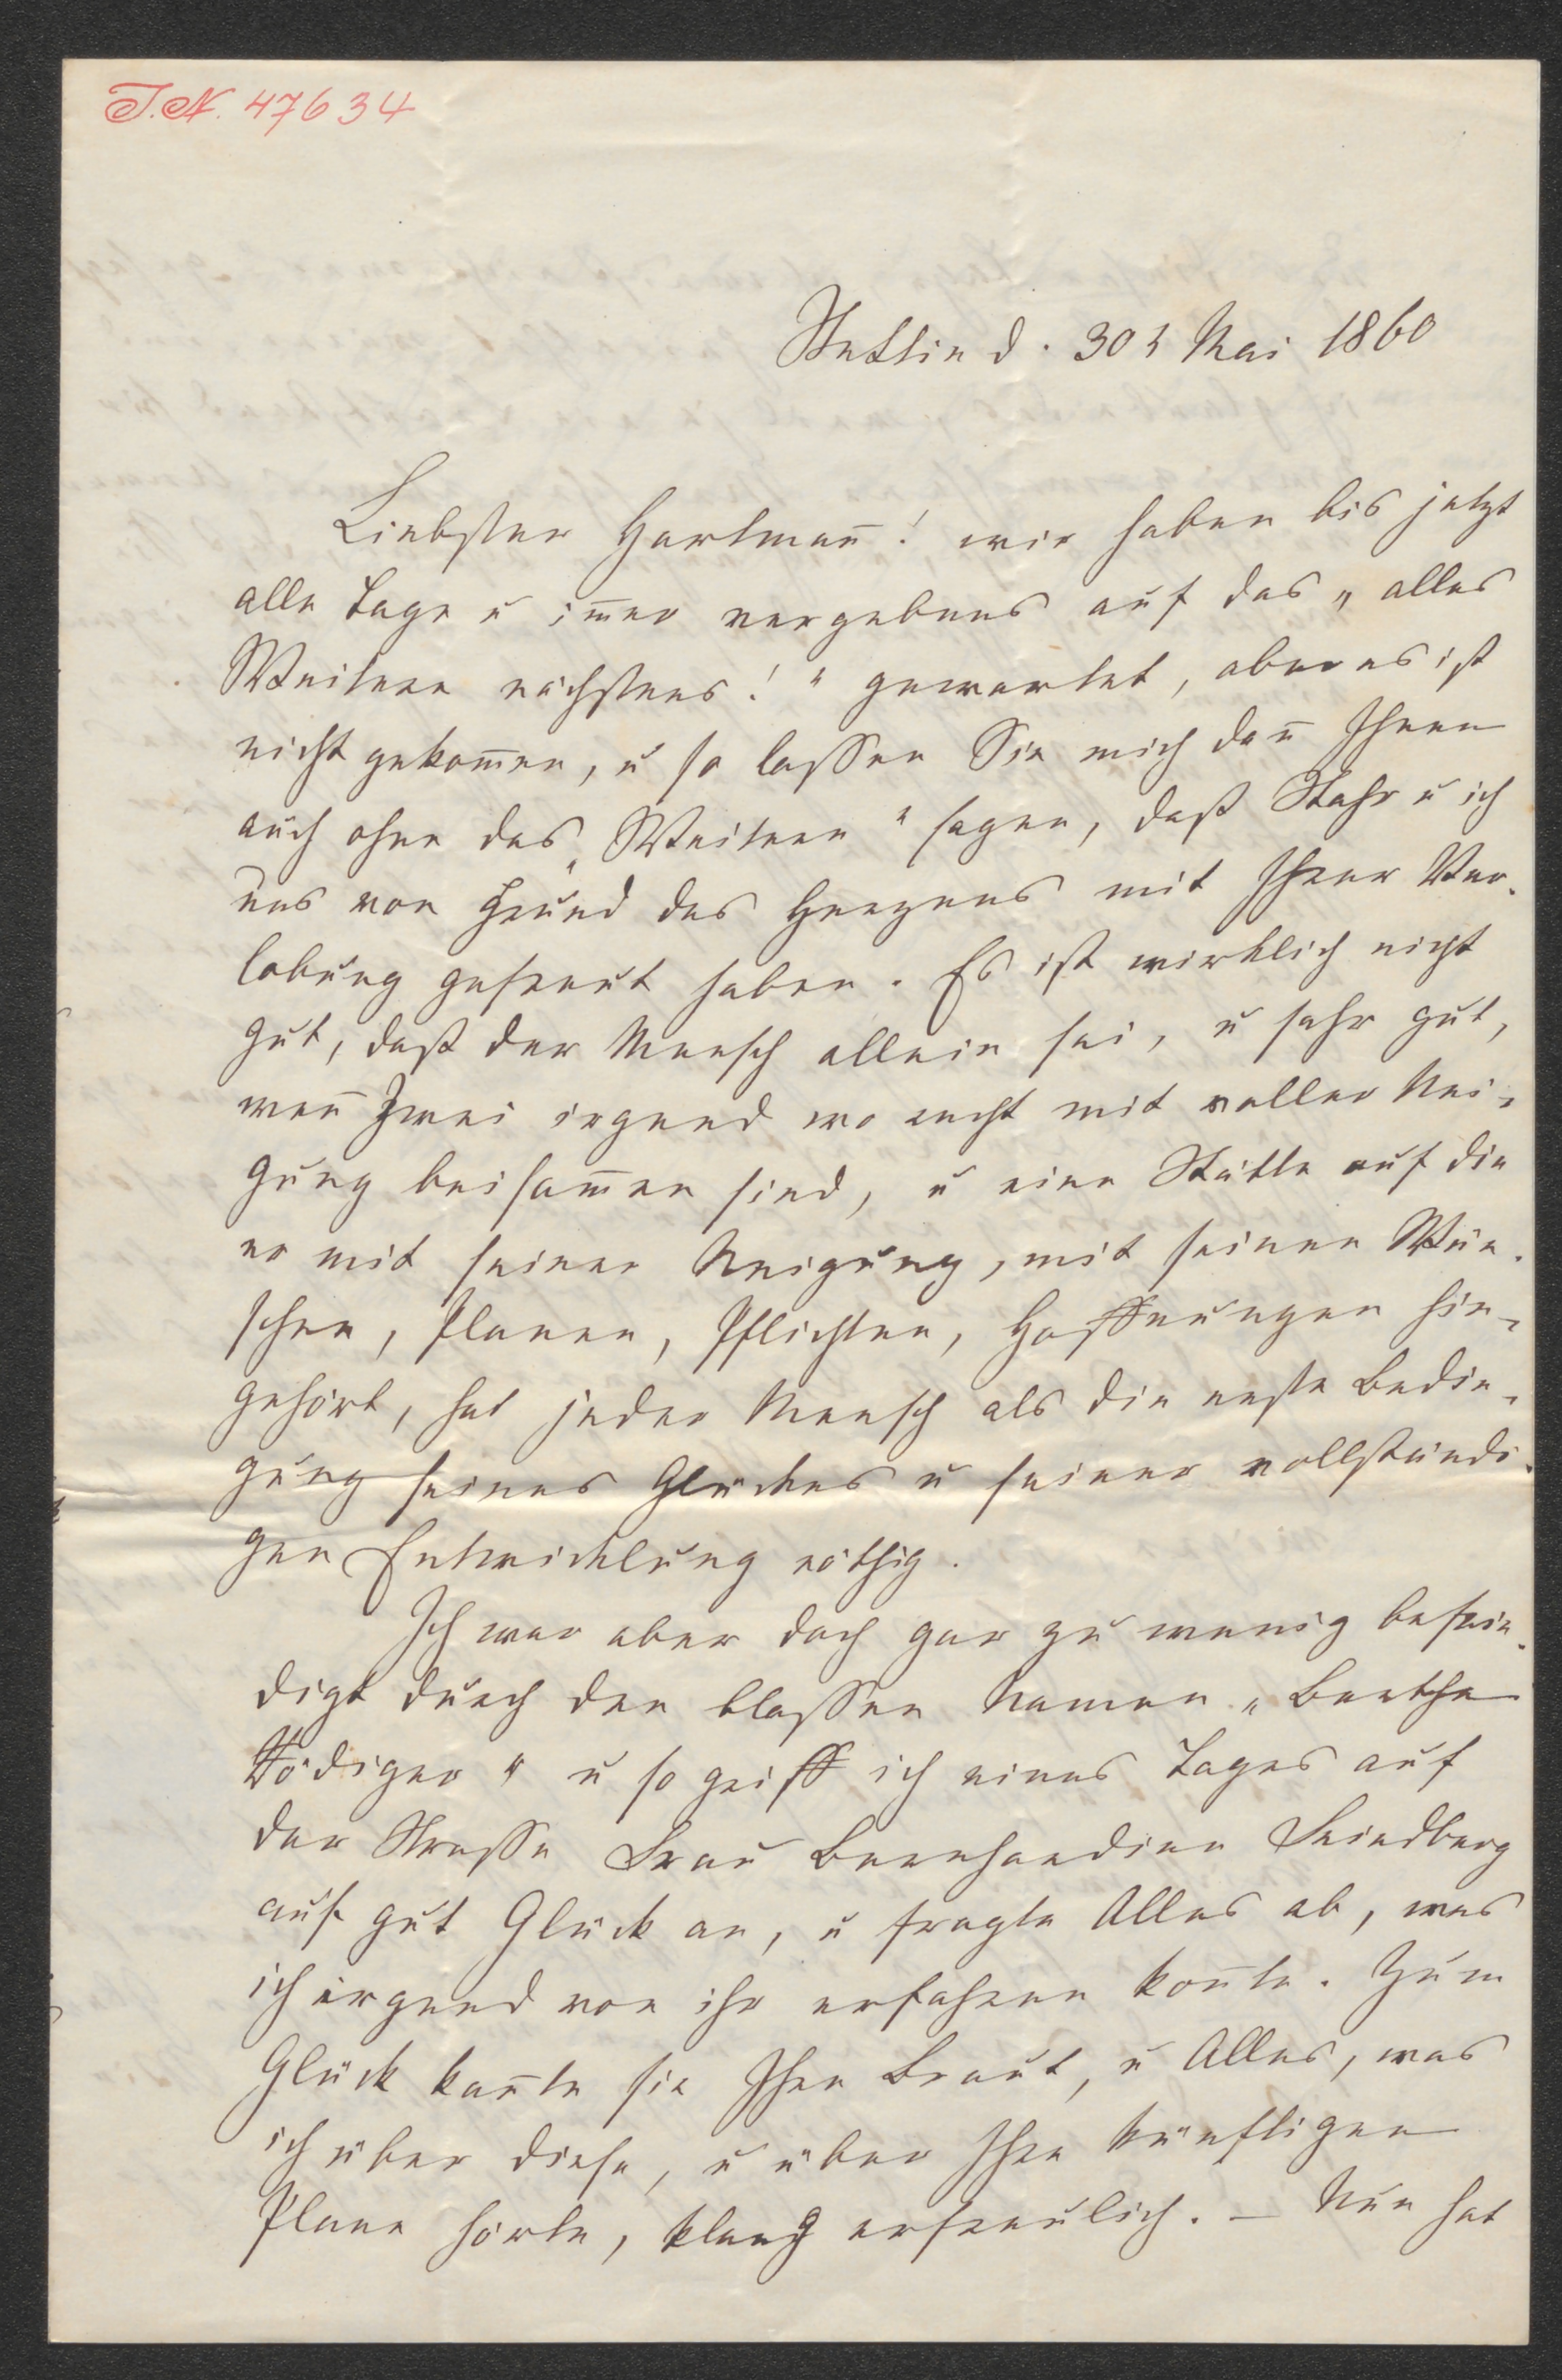 J.N. 47634
Stettin d. 30t Mai 1860
Liebster Hartman̄! wir haben bis jetzt
alle Tage u im̄er vergebens auf das „alles
Weitere nächstens!“ gewartet, aber es ist
nicht gekom̄en, u so lassen Sie mich dan̄ Ihnen
auch ohne das „Weitere“ sagen, daß Stahr u ich
uns von Grund des Herzens mit Ihrer Ver-
lobung gefreut haben. Es ist wirklich nicht
gut, daß der Mensch allein sei, u sehr gut,
wen̄ Zwei irgend wo recht mit voller Nei-
gung beisam̄en sind, u eine Stätte auf die
er mit seiner Neigung, mit seinen Wün-
schen, Planen, Pflichten, Hoffnungen hin-
gehört, hat jeder Mensch als die erste Bedin-
gung seines Glückes u seiner vollständi-
gen Entwicklung nöthig.
Ich war aber doch gar zu wenig befrie-
digt durch den blossen Namen „Bertha
Rödiger“ u so griff ich eines Tages auf
der Strasse Frau Bernhardine Friedberg
auf gut Glück an, u fragte Alles ab, was
ich irgend von ihr erfahren kon̄te. Zum
Glück kan̄te sie Ihre Braut, u Alles, was
ich über diese, u über Ihre künftigen
Plane hörte, klang erfreulich. – Nun hat